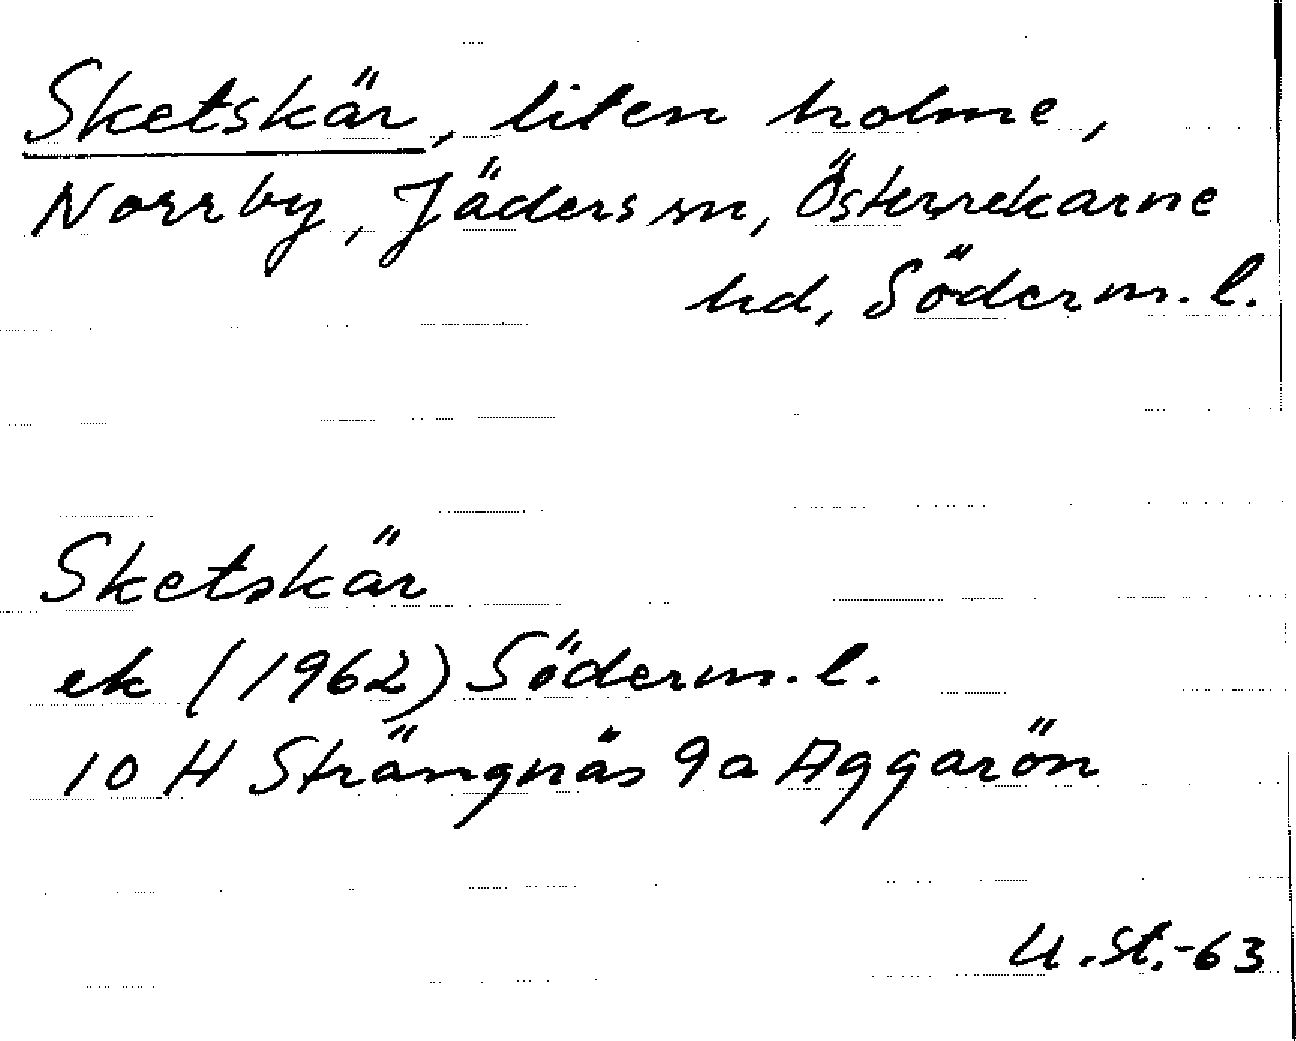 Sketskär, liten holme,
Norrby, Jäders sn, Österrekarne
hd, Söderm. l.
Sketskär
ek (1962) Söderm. l.
10 H Strängnäs 9a Aggarön
U. St. -63